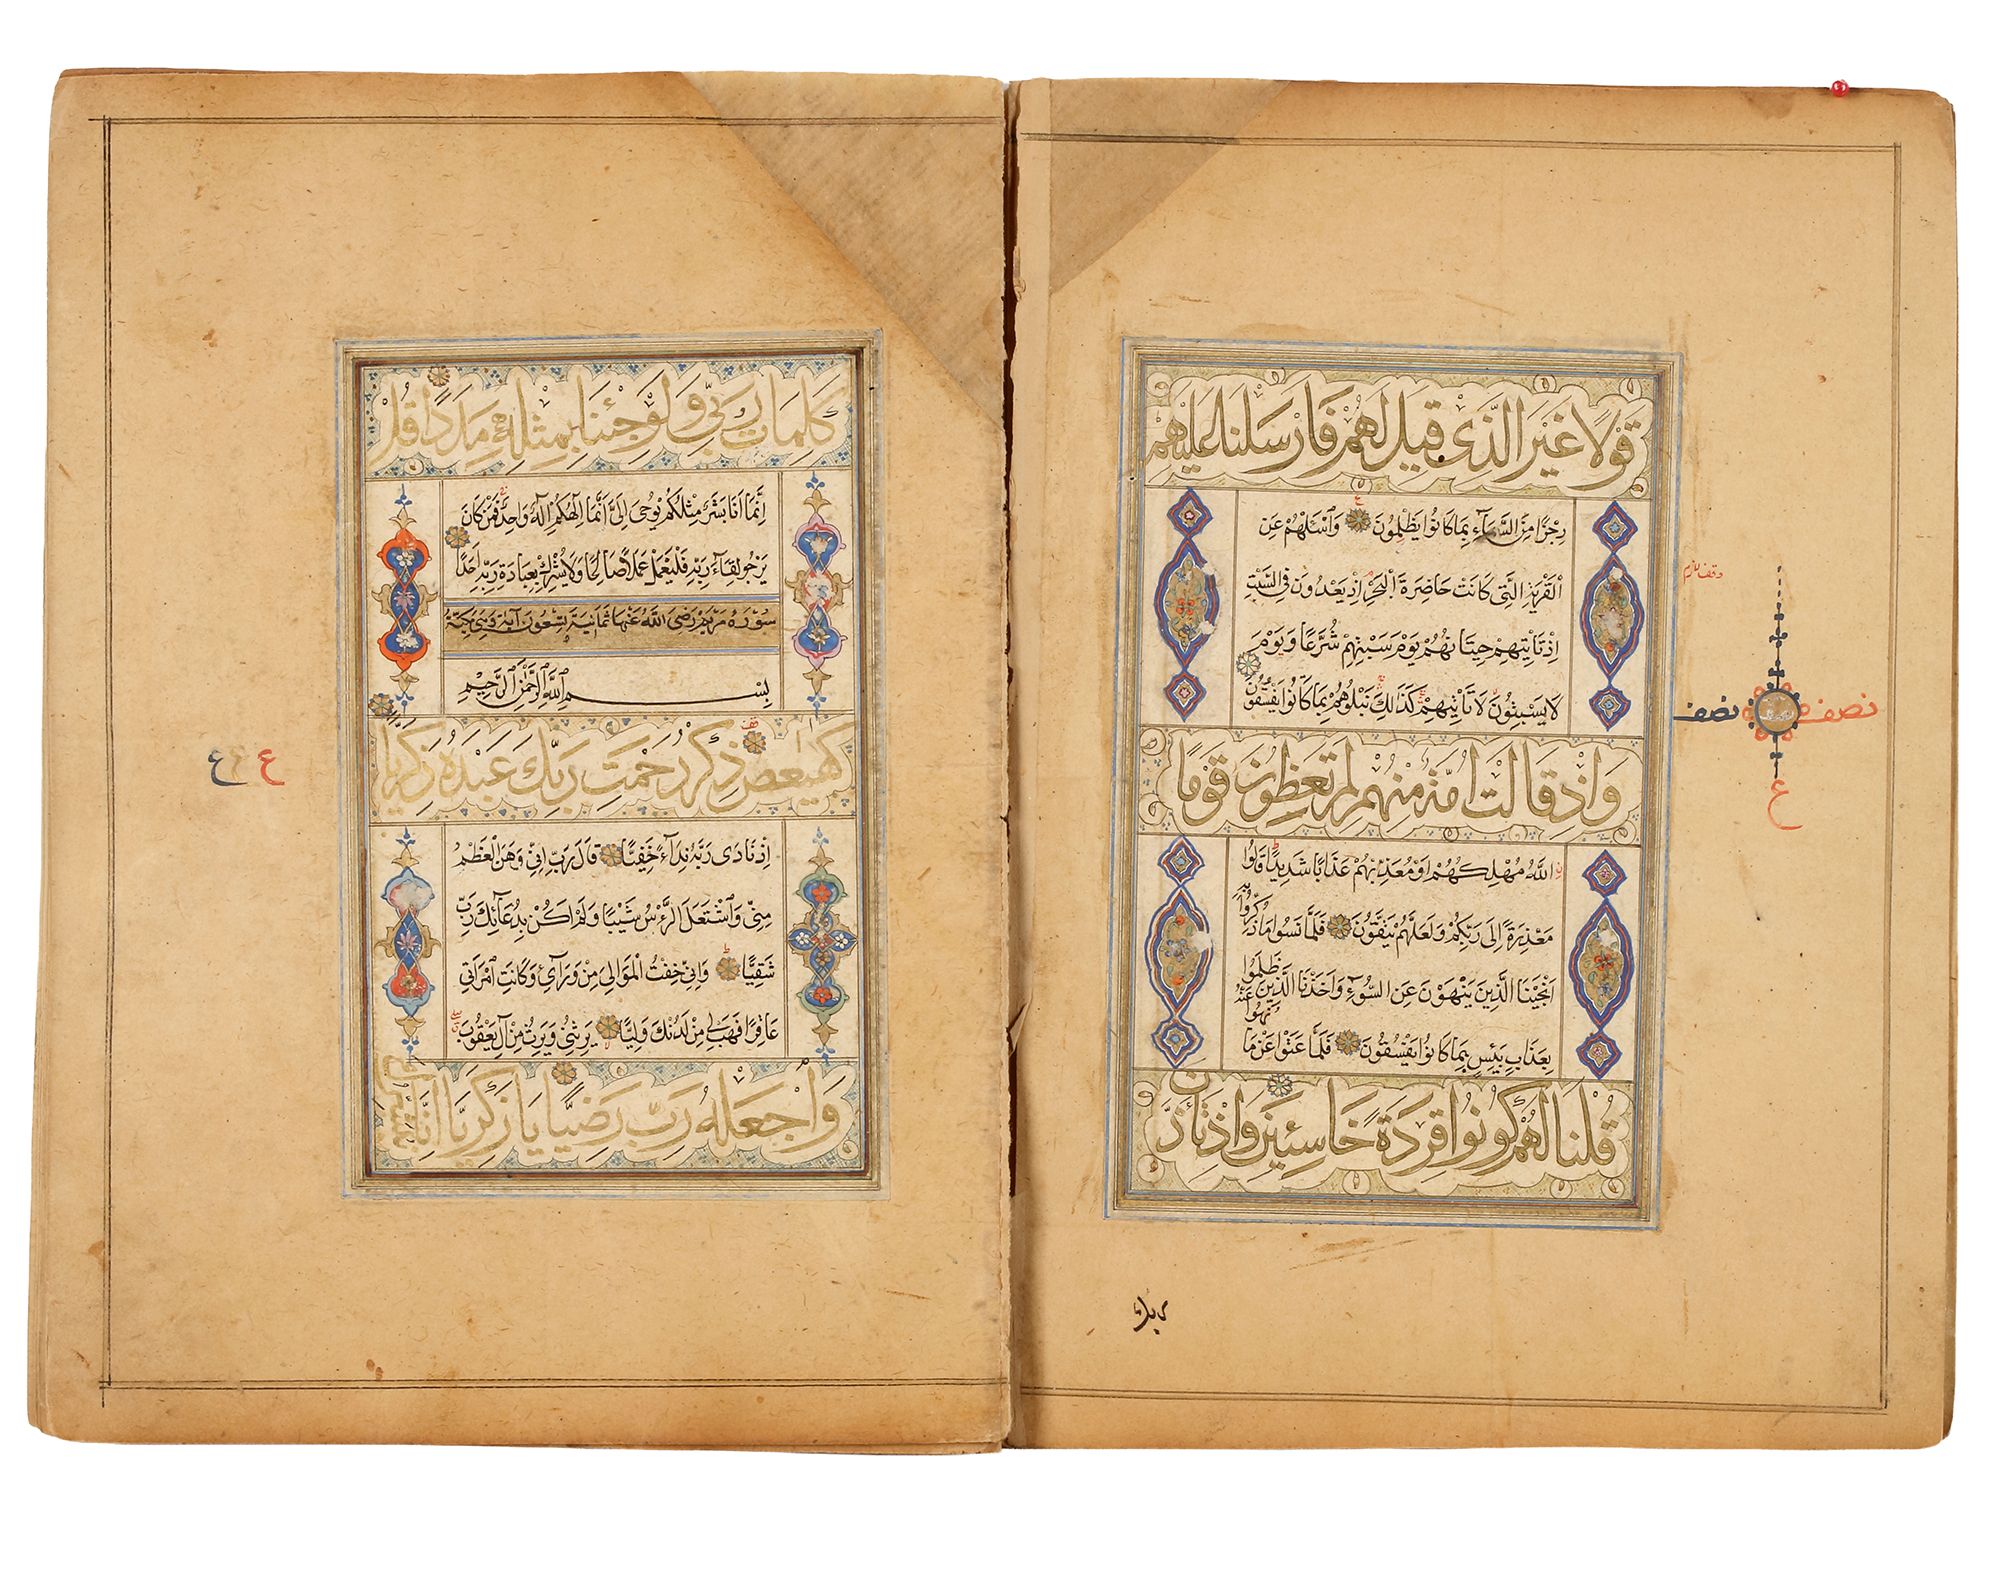 قَوْلًا غَيْرَ الَّذِى قِيلَ لَهُمْ فَأَرْسَلْنَا عَلَيْهِمْ
رِجْزًا مِنَ السَّمَآءِ بِمَا كَانُوا يَظْلِمُونَ وَاسْئَلْهُمْ عَنِ
الْقَرْيَةِ الَّتِى كَانَتْ حَاضِرَةَ الْبَحْرِ اِذْ يَعْدُونَ فِى السَّبْتِ
اِذْ تَأْتِيهِمْ حِيتَانُهُمْ يَوْمَ سَبْتِهِمْ شُرَّعًا وَيَوْمَ
لَا يَسْبِتُونَ لَا تَأْتِيهِمْ كَذٰلِكَ نَبْلُوهُمْ بِمَا كَانُوا يَفْسُقُونَ
وَاِذْ قَالَتْ اُمَّةٌ مِنْهُمْ لِمَ تَعِظُونَ قَوْمًا
اللَّهُ مُهْلِكُهُمْ اَوْ مُعَذِّبُهُمْ عَذَابًا شَدِيدًا قَالُوا
مَعْذِرَةً اِلَى رَبِّكُمْ وَلَعَلَّهُمْ يَتَّقُونَ فَلَمَّا نَسُوا مَا ذُكِّرُوا بِهِ
اَنْجَيْنَا الَّذِينَ يَنْهَوْنَ عَنِ السُّوٓءِ وَاَخَذْنَا الَّذِينَ ظَلَمُوا
بِعَذَابٍ بَئِيسٍ بِمَا كَانُوا يَفْسُقُونَ فَلَمَّا عَتَوْا عَنْ مَا نُهُوا عَنْهُ
قُلْنَا لَهُمْ كُونُوا قِرَدَةً خَاسِئِينَ وَاِذْ تَاَذَّنَ
وقف لازم
نصف نصف
ع
ربك
كَلِمَاتُ رَبِّى وَلَوْ جِئْنَا بِمِثْلِهِ مَدَدًا قُلْ
اِنَّمَا اَنَا بَشَرٌ مِثْلُكُمْ يُوحَى اِلَىَّ اَنَّمَا اِلٰهُكُمْ اِلٰهٌ وَاحِدٌ فَمَنْ كَانَ
يَرْجُو لِقَآءَ رَبِّهِ فَلْيَعْمَلْ عَمَلًا صَالِحًا وَلَا يُشْرِكْ بِعِبَادَةِ رَبِّهِ اَحَدًا
سُورَةُ مَرْيَمَ رَضِىَ اللَّهُ عَنْهَا ثَمَانِيَةٌ تِسْعُونَ آيَةً وَهِىَ مَكِّيَّةٌ
بِسْمِ اللَّهِ الرَّحْمٰنِ الرَّحِيمِ
كهيعص ذِكْرُ رَحْمَتِ رَبِّكَ عَبْدَهُ زَكَرِيَّا
اِذْ نَادَى رَبَّهُ نِدَآءً خَفِيًّا قَالَ رَبِّ اِنِّى وَهَنَ الْعَظْمُ
مِنِّى وَاشْتَعَلَ الرَّأْسُ شَيْبًا وَلَمْ اَكُنْ بِدُعَآئِكَ رَبِّ
شَقِيًّا وَاِنِّى خِفْتُ الْمَوَالِىَ مِنْ وَرَآئِى وَكَانَتِ امْرَاَتِى
عَاقِرًا فَهَبْ لِى مِنْ لَدُنْكَ وَلِيًّا يَرِثُنِى وَيَرِثُ مِنْ آلِ يَعْقُوبَ
وَاجْعَلْهُ رَبِّ رَضِيًّا يَا زَكَرِيَّا اِنَّا نُبَشِّرُكَ
ع ع ع